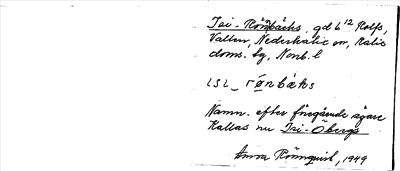 Isi-Rönnbäcks, gd 6¹² Rolfs,
Vallen, Nederkalix sn, Kalix
doms. sg, Nonb. l
ɩsɩ_ rønbȧks
Namn. efter föregående ägare
Kallas nu Isi-Öbergs
Anna Rönnqvist, 1949